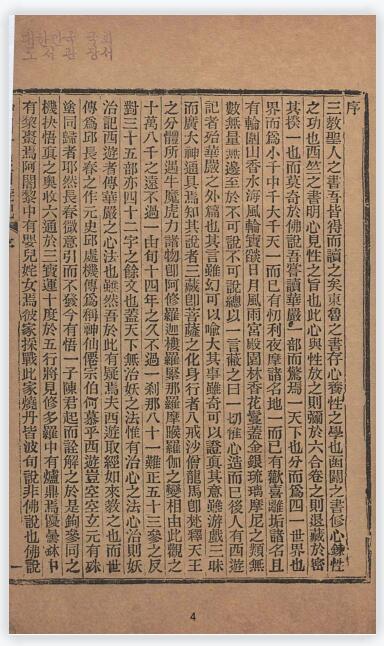 대한민국 국회
도서관 장서
序
三教聖人之書吾皆得而讀之矣東魯之書存心養性之學也函關之書修心鍊性
之功也西竺之書明心見性之旨也此心與性放之則彌於六合卷之則退藏於密
其揆一也而莫奇於佛說吾嘗讀華嚴一部而驚焉一天下也分而為四一世界也
界而為小千中千大千天一而已有忉利夜摩諸名地一而已有歡喜離垢諸名且
有輪圍山香水海風輪寶燄日月風雨宮殿園林香花鬘蓋金銀琉璃摩尼之類無
數無量無邊至於不可說不可說總以一言蔽之曰一切惟心造而已後人有西遊
記者殆華嚴之外篇也其言雖幻可以喻大其事雖奇可以證真其意雖游戲三昧
而廣大神通具焉知其說者三藏卽菩薩之化身行者八戒沙僧龍馬卽梵釋天王
之分體所遇牛魔虎力諸物卽阿修羅迦樓羅緊那羅摩睺羅伽之變相由此觀之
十萬八千之遠不過一由旬十四年之久不過一剎那八十一難正五十三參之反
對三十五部亦四十二字之餘文也蓋天下無治妖之法惟有治心之法心治則妖
治記西遊者傳華嚴之心法也雖然吾於此有疑焉夫西遊取經如來教之也而世
傳爲邱長春之作元史邱處機傳稱為神仙宗伯何慕乎西遊豈空空玄玄有殊
塗同歸者耶然長春微意引而不發今有悟一子陳君起而詮解之於是鉤參同之
機抉悟真之奧收六通於三寶運十度於五行將見修多羅中有爐鼎焉優曇鉢中
有棃棗焉阿闍黎中有嬰兒姹女焉彼家採戰此家燒丹皆波旬說非佛說也佛說
4